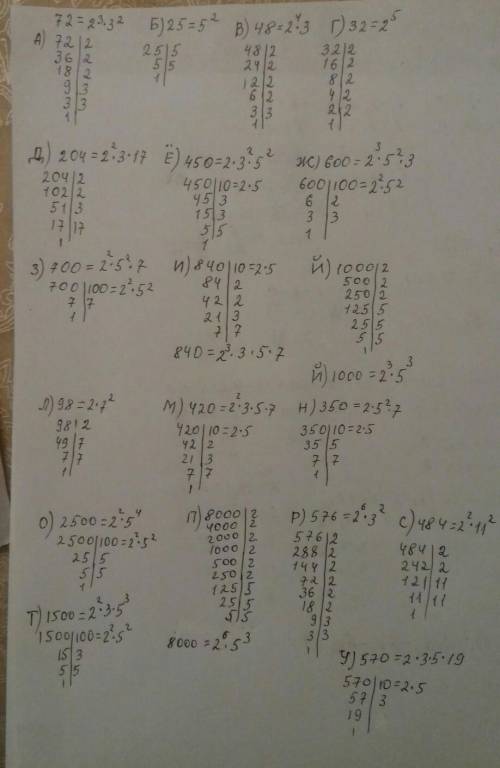 А) 72 = 2³·3²
72|2
36|2
18|2
9|3
3|3
1
Б) 25 = 5²
25|5
5|5
1
В) 48 = 2⁴·3
48|2
24|2
12|2
6|2
3|3
1
Г) 32 = 2⁵
32|2
16|2
8|2
4|2
2|2
1
Д) 204 = 2²·3·17
204|2
102|2
51|3
17|17
1
Ё) 450 = 2·3²·5²
450|10 = 2·5
45|3
15|3
5|5
1
Ж) 600 = 2³·5²·3
600|100 = 2²·5²
6|2
3|3
1
З) 700 = 2²·5²·7
700|100 = 2²·5²
7|7
1
И) 840|10 = 2·5
84|2
42|2
21|3
7|7
840 = 2³·3·5·7
Й) 1000|2
500|2
250|2
125|5
25|5
5|5
1
Й) 1000 = 2³·5³
Л) 98 = 2·7²
98|2
49|7
7|7
1
М) 420 = 2²·3·5·7
420|10 = 2·5
42|2
21|3
7|7
1
Н) 350 = 2·5²·7
350|10 = 2·5
35|5
7|7
1
О) 2500 = 2²·5⁴
2500|100 = 2²·5²
25|5
5|5
1
П) 8000|2
4000|2
2000|2
1000|2
500|2
250|2
125|5
25|5
5|5
8000 = 2⁶·5³
Р) 576 = 2⁶·3²
576|2
288|2
144|2
72|2
36|2
18|2
9|3
3|3
1
С) 484 = 2²·11²
484|2
242|2
121|11
11|11
1
Т) 1500 = 2²·3·5³
1500|100 = 2²·5²
15|3
5|5
1
У) 570 = 2·3·5·19
570|10 = 2·5
57|3
19|
1